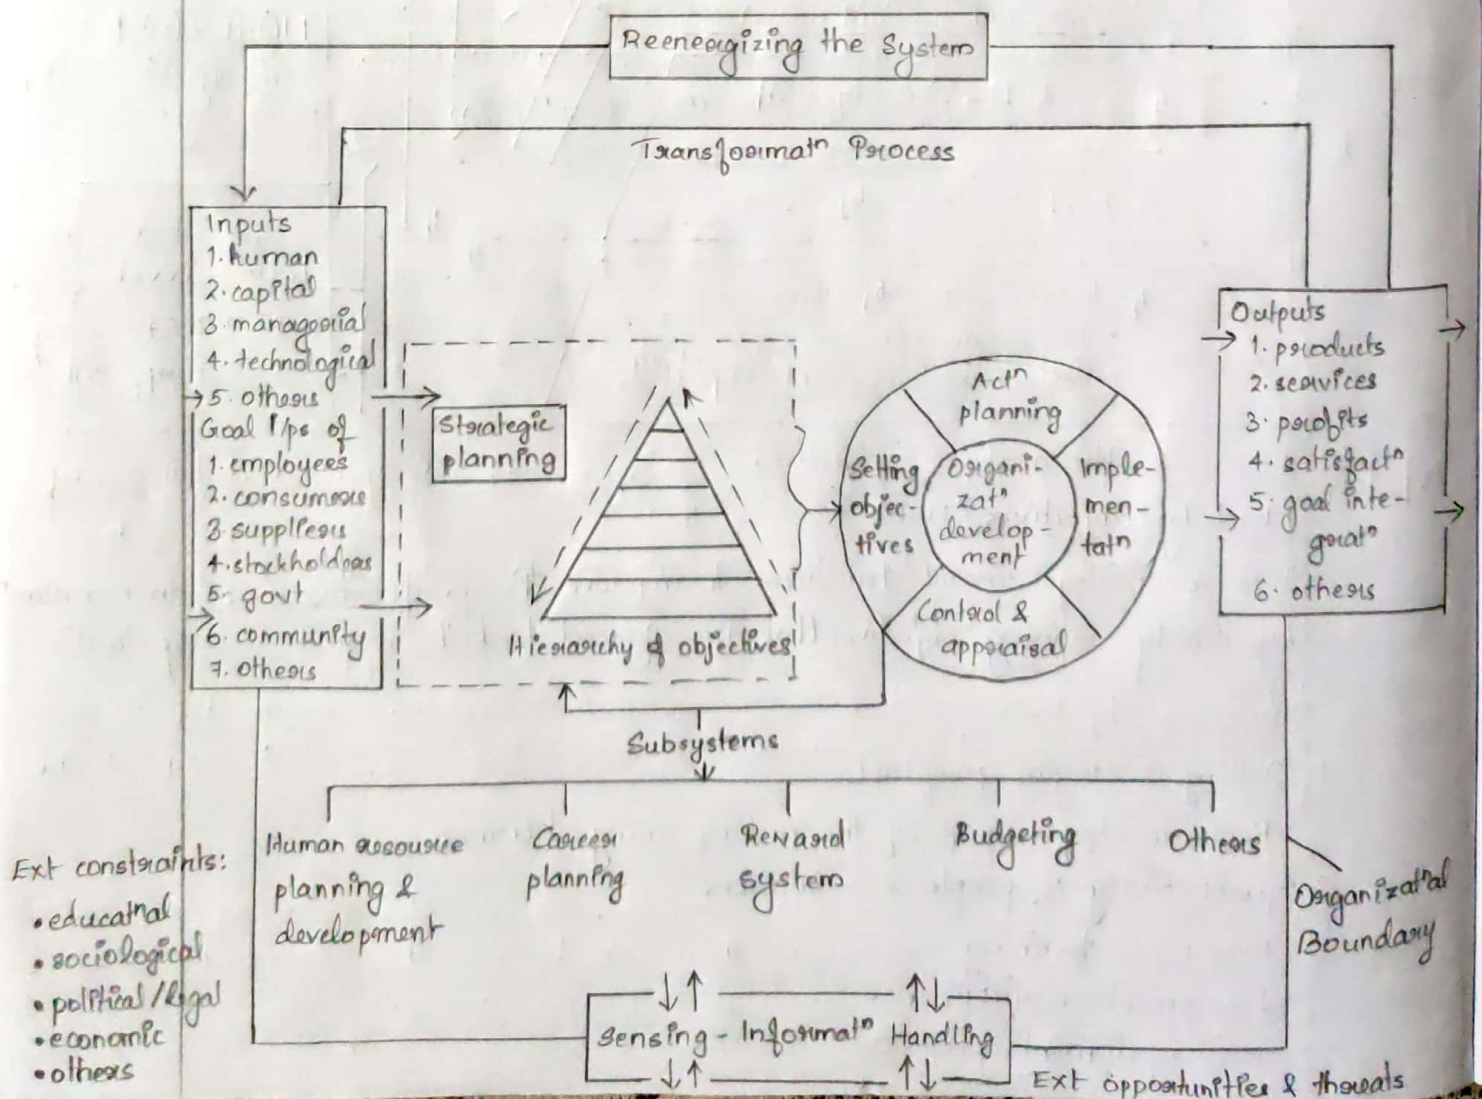 Reenergizing the System
Transformatⁿ Process
Inputs
1. human
2. capital
3. managerial
4. technological
5. others
Goal i/ps of
1. employees
2. consumers
3. suppliers
4. stockholders
5. govt
6. community
7. others
Strategic
planning
Hierarchy of objectives
Actⁿ
planning
Setting
objec-
tives
Organi-
zatⁿ
develop-
ment
Imple-
men-
tatn
Control &
appraisal
Outputs
1. products
2. services
3. profits
4. satisfactⁿ
5. goal inte-
gratⁿ
6. others
Subsystems
Human resource
planning &
development
Career
planning
Reward
system
Budgeting
Others
Ext constraints:
• educatnal
• sociological
• political/legal
• economic
• others
Organizatⁿal
Boundary
Sensing - Informatⁿ Handling
Ext opportunities & threats